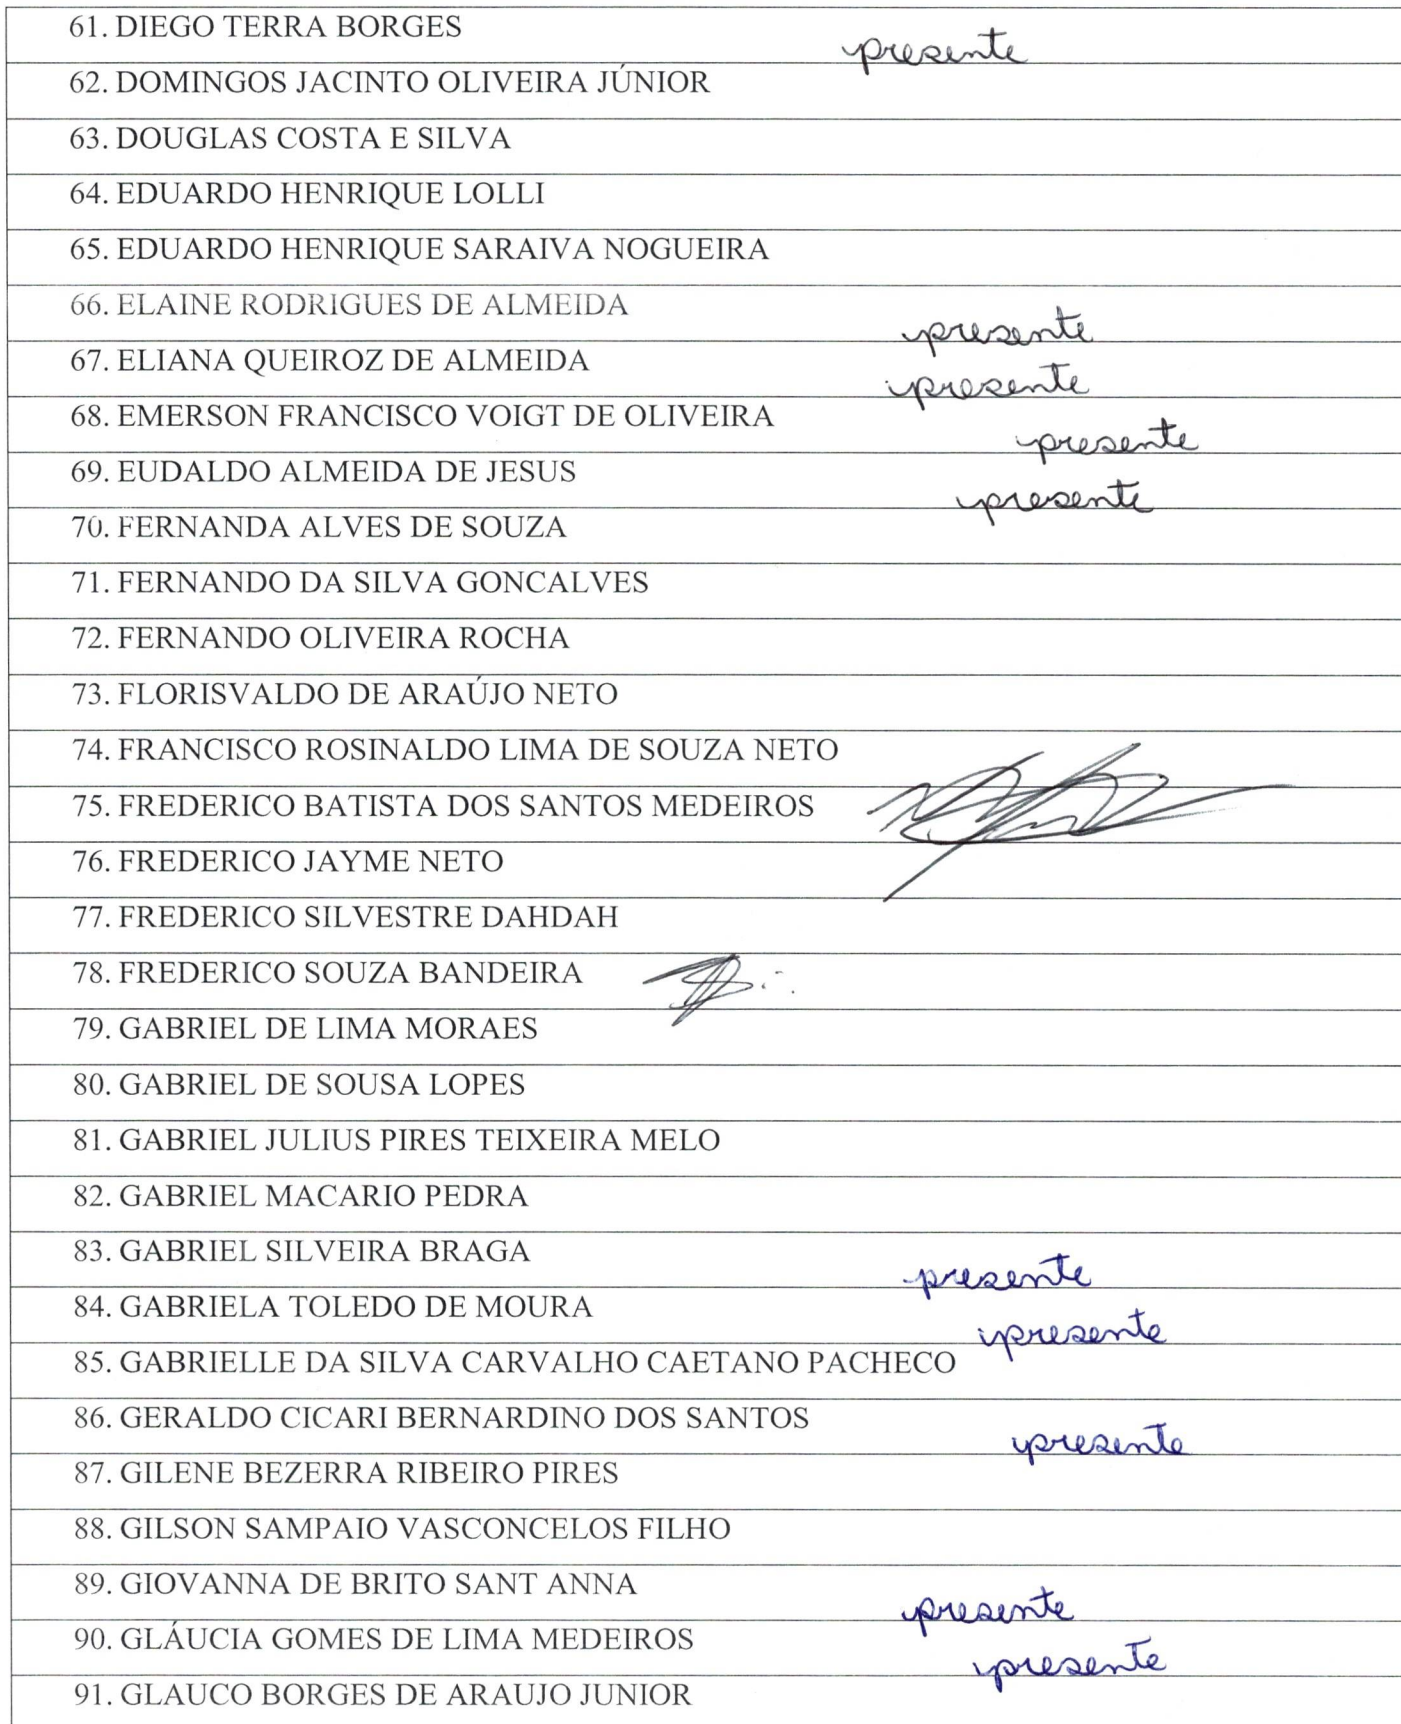 61. DIEGO TERRA BORGES presente
62. DOMINGOS JACINTO OLIVEIRA JÚNIOR
63. DOUGLAS COSTA E SILVA
64. EDUARDO HENRIQUE LOLLI
65. EDUARDO HENRIQUE SARAIVA NOGUEIRA
66. ELAINE RODRIGUES DE ALMEIDA presente
67. ELIANA QUEIROZ DE ALMEIDA presente
68. EMERSON FRANCISCO VOIGT DE OLIVEIRA presente
69. EUDALDO ALMEIDA DE JESUS presente
70. FERNANDA ALVES DE SOUZA
71. FERNANDO DA SILVA GONCALVES
72. FERNANDO OLIVEIRA ROCHA
73. FLORISVALDO DE ARAÚJO NETO
74. FRANCISCO ROSINALDO LIMA DE SOUZA NETO
75. FREDERICO BATISTA DOS SANTOS MEDEIROS
76. FREDERICO JAYME NETO
77. FREDERICO SILVESTRE DAHDAH
78. FREDERICO SOUZA BANDEIRA
79. GABRIEL DE LIMA MORAES
80. GABRIEL DE SOUSA LOPES
81. GABRIEL JULIUS PIRES TEIXEIRA MELO
82. GABRIEL MACARIO PEDRA
83. GABRIEL SILVEIRA BRAGA presente
84. GABRIELA TOLEDO DE MOURA presente
85. GABRIELLE DA SILVA CARVALHO CAETANO PACHECO
86. GERALDO CICARI BERNARDINO DOS SANTOS presente
87. GILENE BEZERRA RIBEIRO PIRES
88. GILSON SAMPAIO VASCONCELOS FILHO
89. GIOVANNA DE BRITO SANT ANNA presente
90. GLÁUCIA GOMES DE LIMA MEDEIROS presente
91. GLAUCO BORGES DE ARAUJO JUNIOR